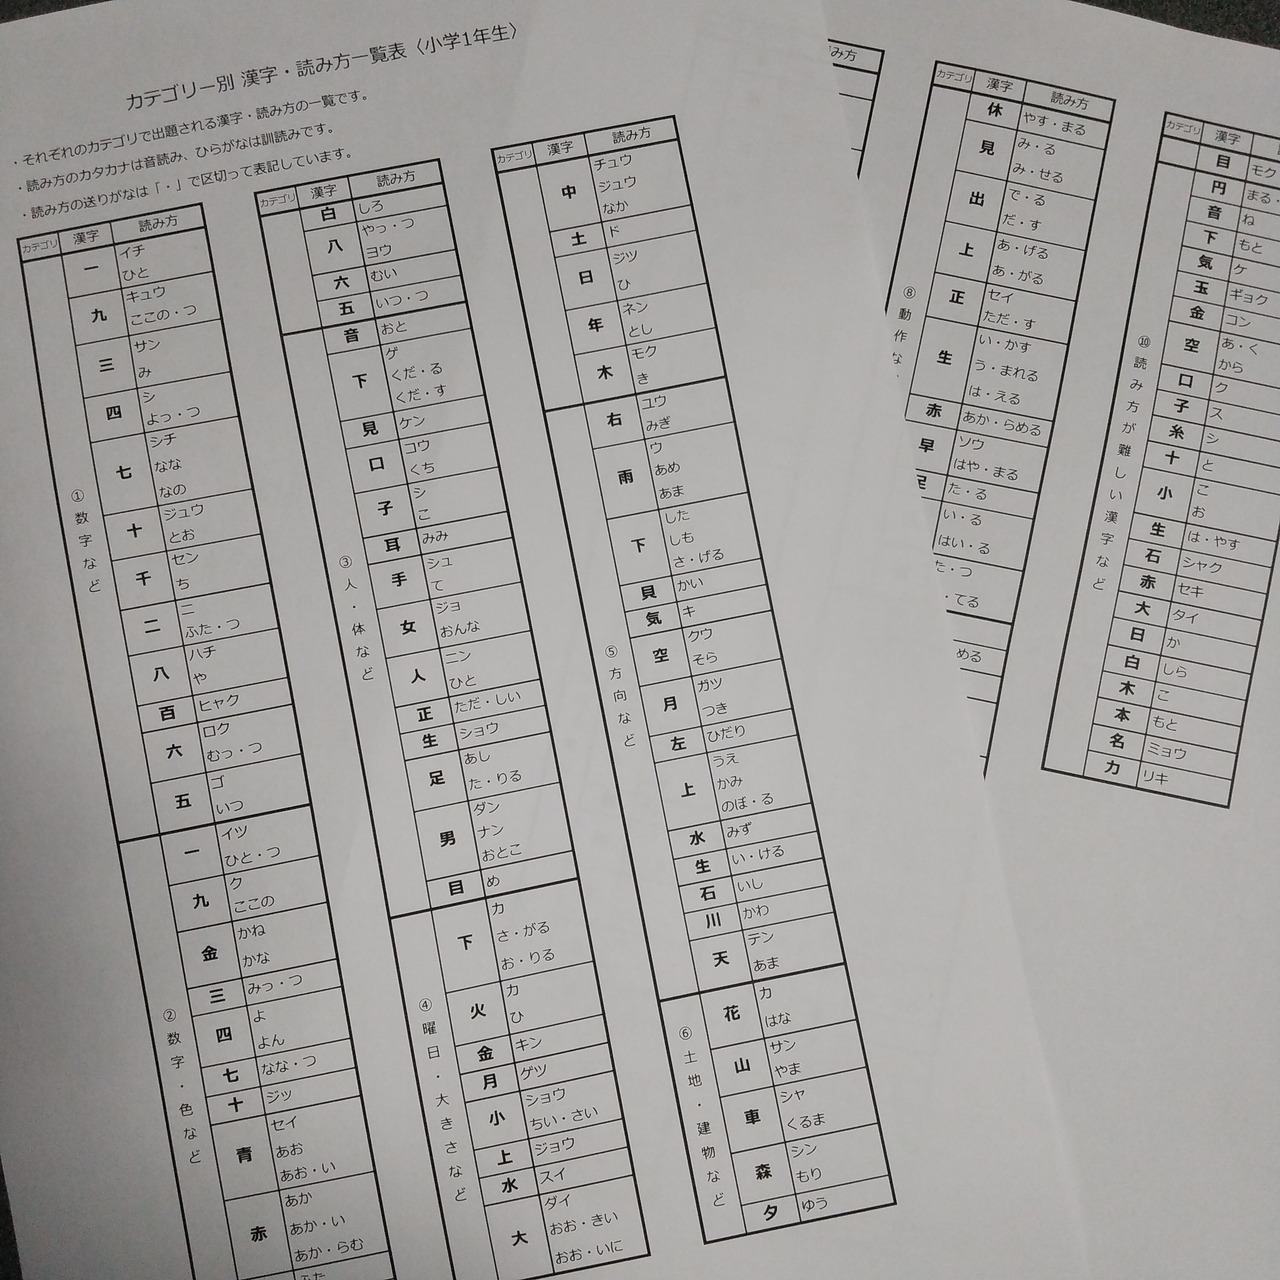 カテゴリー別 漢字・読み方一覧表〈小学1年生〉
・それぞれのカテゴリで出題される漢字・読み方の一覧です。
・読み方のカタカナは音読み、ひらがなは訓読みです。
・読み方の送りがなは「・」で区切って表記しています。
カテゴリ 漢字 読み方
①数字など
一 イチ
ひと
九 キュウ
ここの・つ
三 サン
み
四 シ
よっ・つ
七 シチ
なな
なの
十 ジュウ
とお
千 セン
ち
二 ニ
ふた・つ
八 ハチ
や
百 ヒャク
六 ロク
むっ・つ
五 ゴ
いつ
②数字・色など
一 イツ
ひと・つ
九 ク
ここの
金 かね
かな
三 みっ・つ
四 よ
よん
七 なな・つ
十 ジッ
青 セイ
あお
あお・い
赤 あか
あか・い
あか・らむ
ふた
カテゴリ 漢字 読み方
白 しろ
八 やっ・つ
ヨウ
六 むい
五 いつ・つ
③人・体など
音 おと
下 ゲ
くだ・る
くだ・す
見 ケン
口 コウ
くち
子 シ
こ
耳 みみ
手 シュ
て
女 ジョ
おんな
人 ニン
ひと
正 ただ・しい
生 ショウ
足 あし
た・りる
男 ダン
ナン
おとこ
目 め
④曜日・大きさなど
下 カ
さ・がる
お・りる
火 カ
ひ
金 キン
月 ゲツ
小 ショウ
ちい・さい
上 ジョウ
水 スイ
大 ダイ
おお・きい
おお・いに
カテゴリ 漢字 読み方
中 チュウ
ジュウ
なか
土 ド
日 ジツ
ひ
年 ネン
とし
木 モク
き
⑤方向など
右 ユウ
みぎ
雨 ウ
あめ
あま
下 した
しも
さ・げる
貝 かい
気 キ
空 クウ
そら
月 ガツ
つき
左 ひだり
上 うえ
かみ
のぼ・る
水 みず
生 い・ける
石 いし
川 かわ
天 テン
あま
⑥土地・建物など
花 カ
はな
山 サン
やま
車 シャ
くるま
森 シン
もり
夕 ゆう
み方
カテゴリ 漢字 読み方
⑧動作な
休 やす・まる
見 み・る
み・せる
出 で・る
だ・す
上 あ・げる
あ・がる
正 セイ
ただ・す
生 い・かす
う・まれる
は・える
赤 あか・らめる
早 ソウ
はや・まる
足 た・る
い・る
はい・る
た・つ
・てる
める
カテゴリ 漢字 読み
目 モク
⑩読み方が難しい漢字など
円 まる・
音 ね
下 もと
気 ケ
玉 ギョク
金 コン
空 あ・く
から
口 ク
子 ス
糸 シ
十 と
小 こ
お
生 は・やす
石 シャク
赤 セキ
大 タイ
日 か
白 しら
木 こ
本 もと
名 ミョウ
力 リキ